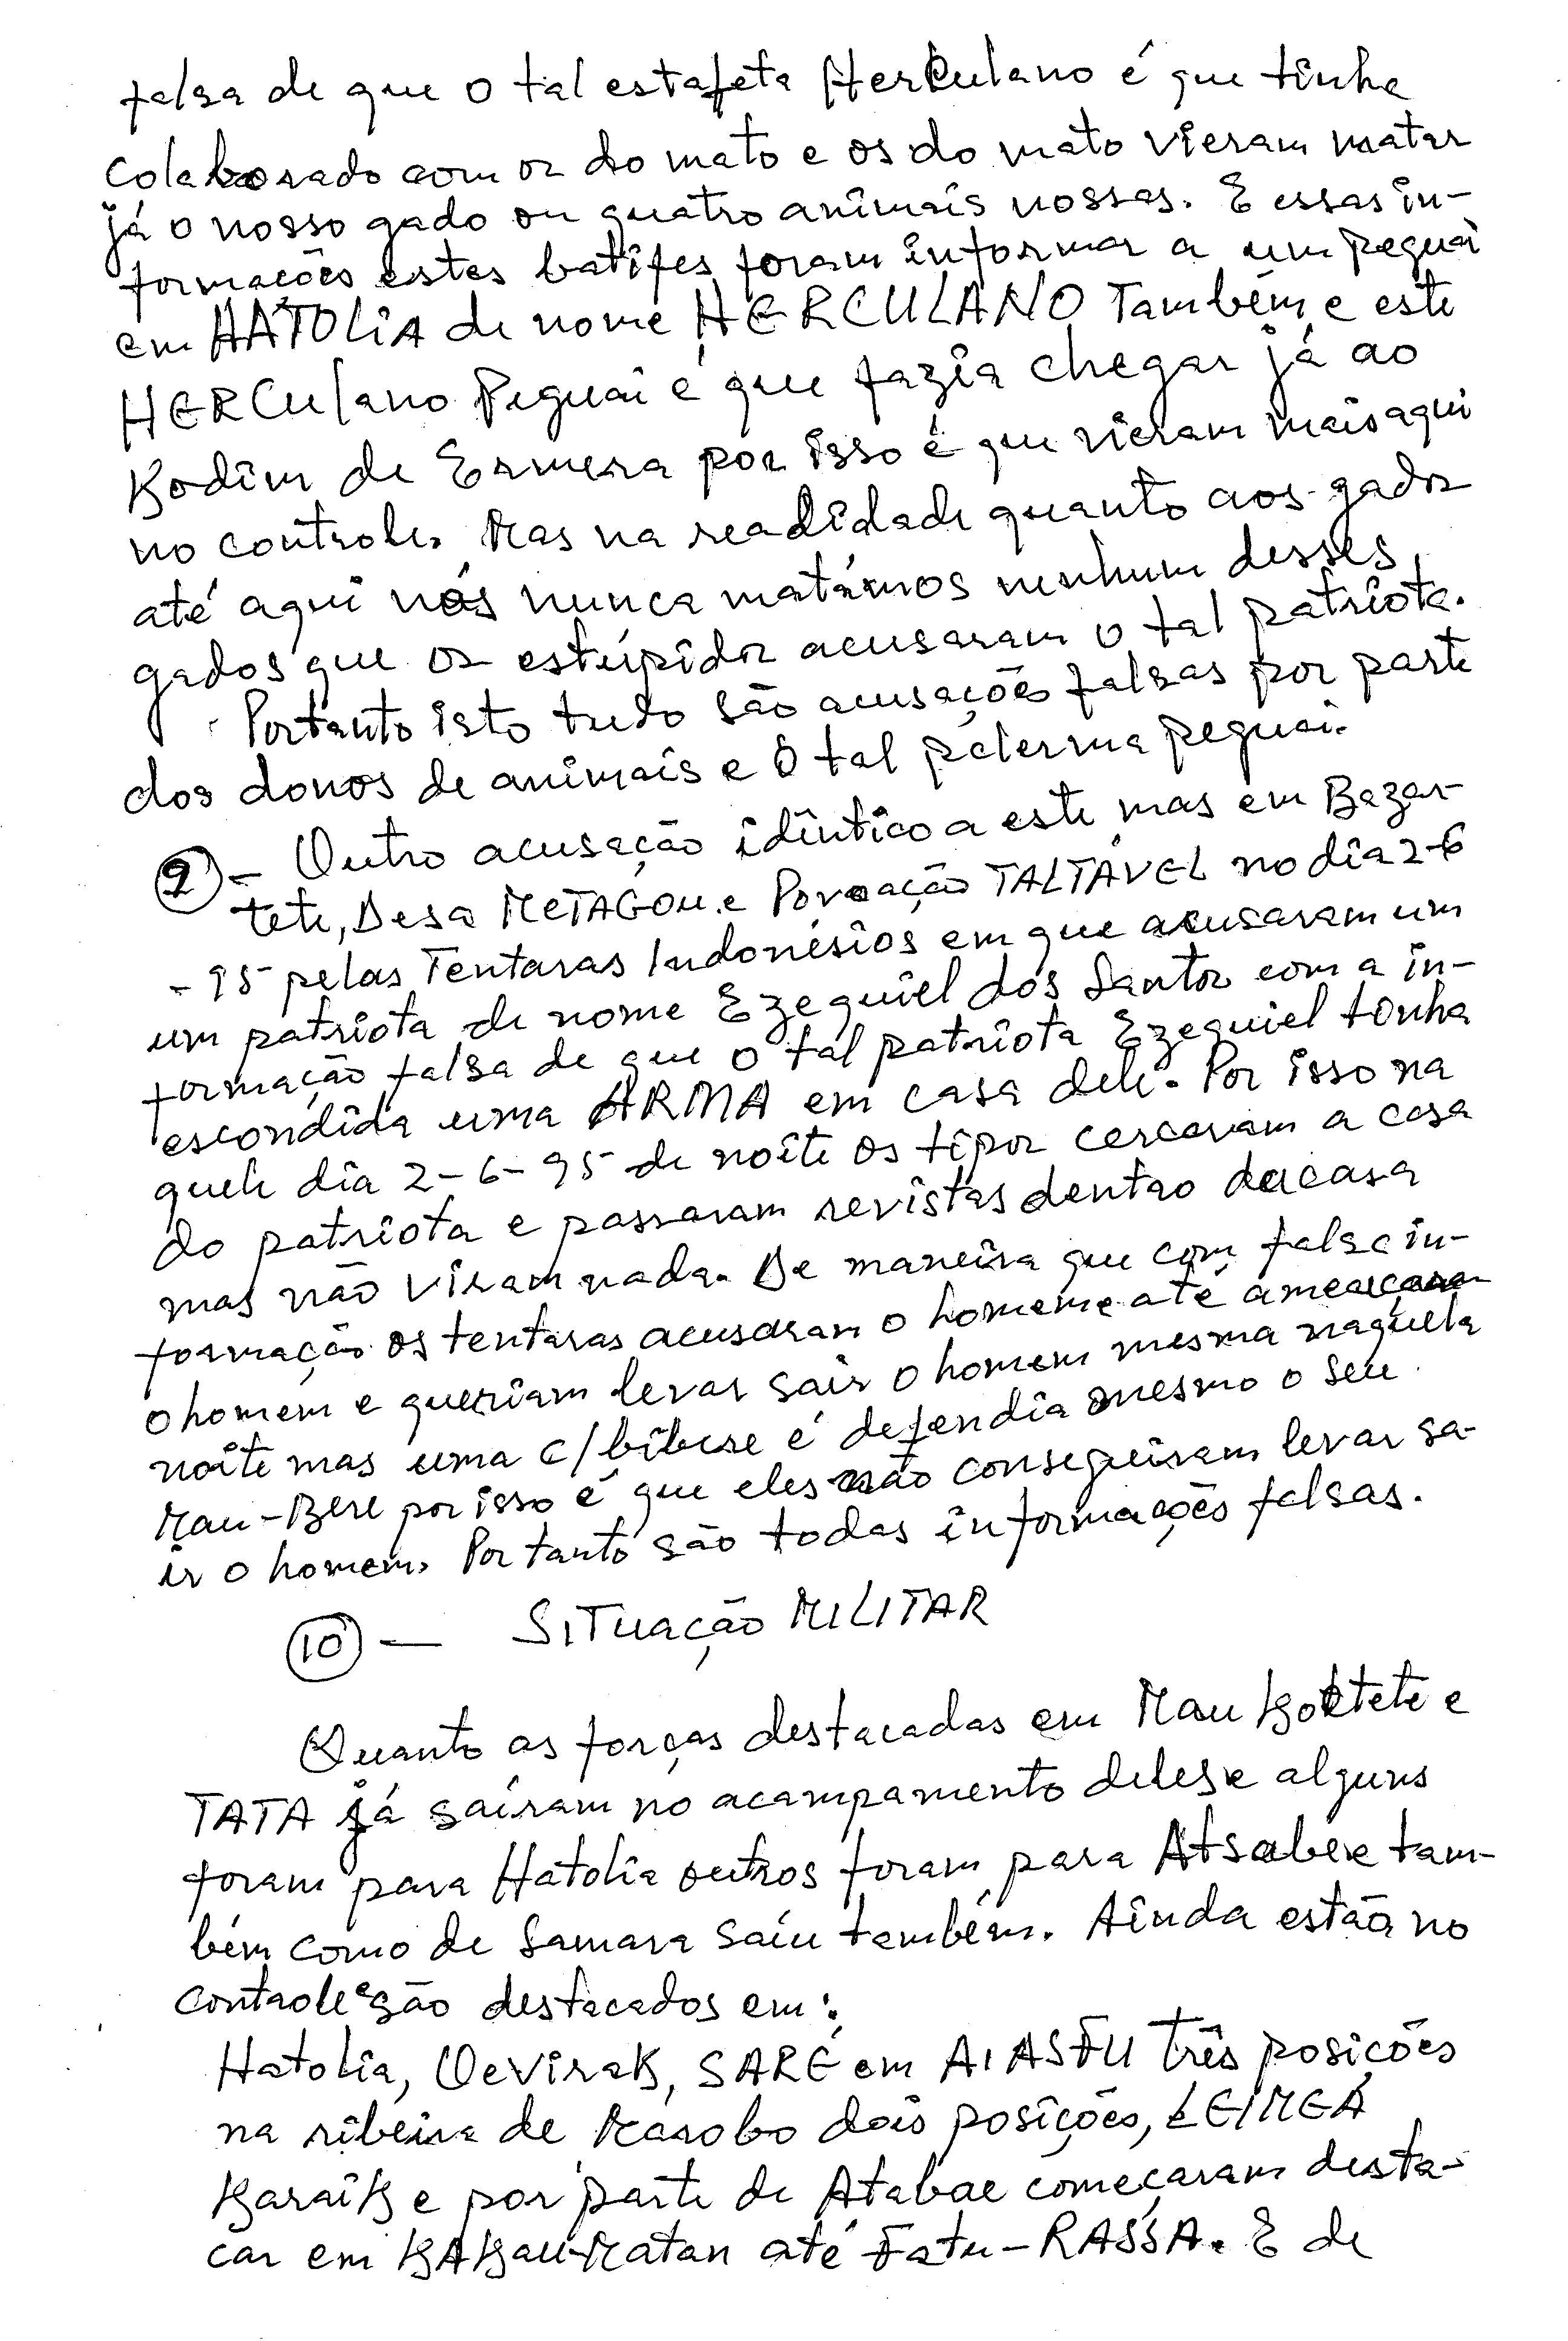 falsa de que o tal estafeta Herculano é que tinha
colaborado com os do mato e os do mato vieram matar
já o nosso gado ou quatro animais nossas. E essas in-
formacões estes batifes foram informar a um peguai
em HATOLIA de nome HERCULANO Também e este
HERCulano Peguai é que fazia chegar já ao
Kodim de Ermera por isso é que vieram mais aqui
no controle. Mas na readidade quanto aos gados
até aqui nós nunca matámos nenhum desses
gados que os estúpidos acusaram o tal patriota.
Portanto isto tudo são acusações falsas por parte
dos donos de animais e o tal palerma peguai.
9 - Outro acusação idîntico a este mas em Bazar-
tete, Desa METAGOU e Povoação TALTÁVEL no dia 2-6
-95 pelas Tentaras Indonésios em que acusaram um
um patriota de nome Ezequiel dos Santos com a in-
formação falsa de que o tal patriota Ezequiel tinha
escondida uma ARMA em casa dele. Por isso na
quele dia 2-6-95 de noite os tipos cercaram a casa
do patriota e passaram revistas dentro da casa
mas não viram nada. De maneira que com falsa in-
formação os tentaras acusaram o homem e até ameaçaram
o homem e queriam levar sair o homem mesma naquela
noite mas uma c/ bibere é defendia mesmo o seu
Mau-Bere por isso é que eles não conseguiram levar sa-
ir o homem. Portanto são todas informações falsas.
10 — SITUAÇÃO MILITAR
Quanto as forças destacadas em Mau Koltete e
TATA já saíram no acampamento deles e alguns
foram para Hatolia outros foram para Atsabe e tam-
bém como de Samara saíu também. Ainda estão no
controle e são destacados em:
Hatolia, Oevirak, SARÉ em AIASFU Três posições
na ribeira de Marobo dois posições, LEIMEA
Karaik e por parte de Atabae começaram desta-
car em KAKau-Matan até Fatu-RASSA. E de